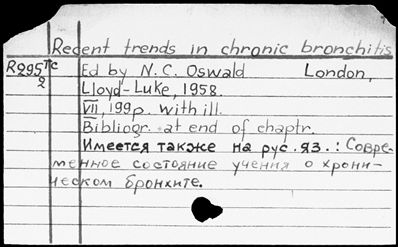 Recent trends in chronic bronchitis
R295 TC Ed by N. C. Oswald London,
2 Lloyd-Luke, 1958.
VII, 199p. with ill.
Bibliogr. at end of chaptr.
Имеется также на рус. яз. : Совре-
менное состояние учения о хрони-
ческом бронхите.